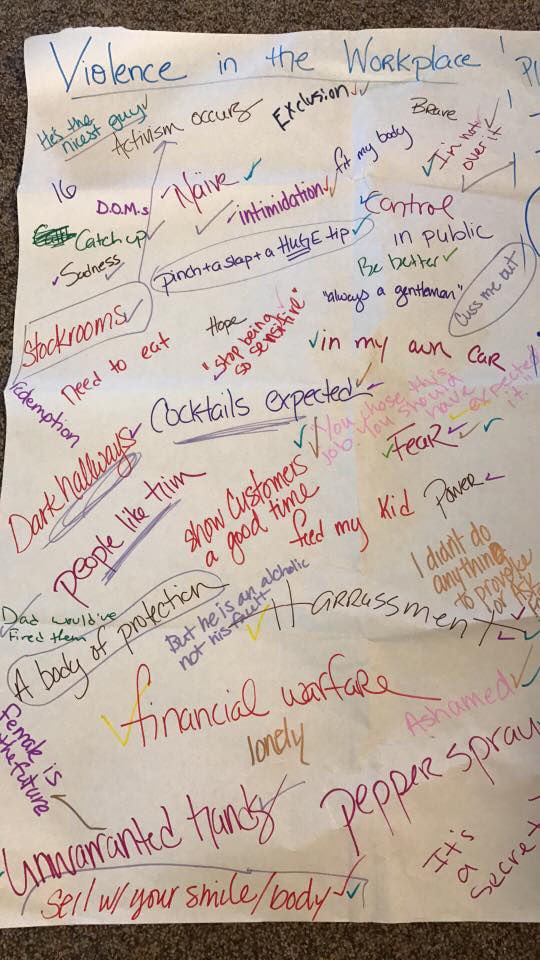 Violence in the Workplace
He's the
nicest guy
Activism occurs
Exclusion
Brave
I'm not
over it
fit my body
16
D.O.M.s
Naive
intimidation
Control
Catch up
in public
Sadness
pinch + a slap + a HUGE tip
Be better
Cuss me out
"always a gentleman"
Stockrooms
Hope
"stop being
so sensitive"
need to eat
in my own car
redemption
Cocktails expected
You chose this
job. You should
have expected
it."
Fear
Dark hallways
people like him
show customers
a good time
feed my kid
Power
I didnt do
anything
to provoke
or
Dad would've
Fired them
A body of protection
But he is an alcholic
not his fault
Harrussment
financial warfare
Female is
the future
lonely
Ashamed
pepper spray
Unwarranted hands
It's
a
secret
Sell w/ your smile/body